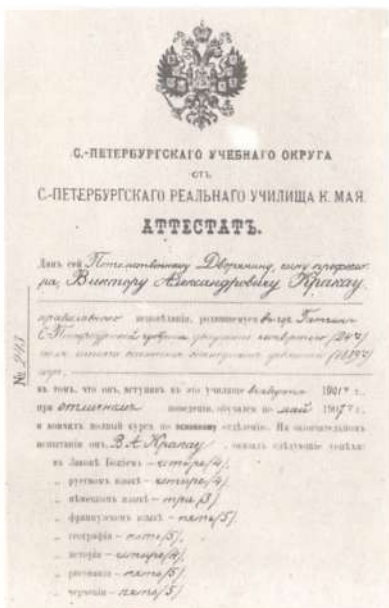 С.-ПЕТЕРБУРГСКАГО УЧЕБНАГО ОКРУГА
ОТЪ
С.-ПЕТЕРБУРГСКАГО РЕАЛЬНАГО УЧИЛИЩА К. МАЯ.
АТТЕСТАТЪ.
Данъ сей Потомственному Дворянину, сыну профессо-
ра, Виктору Александровичу Кракау,
православнаго исповѣданія, родившемуся
С-Петербургской губерніи
въ томъ, что онъ, вступивъ въ это училище 1901 г.
при отличномъ поведеніи, обучался по май 1907 г.
и кончилъ полный курсъ по основному отдѣленію. На окончательномъ
испытаніи онъ, В. А. Кракау, оказалъ слѣдующіе успѣхи:
въ Законѣ Божіемъ – четыре (4),
„ русскомъ языкѣ – четыре (4),
„ нѣмецкомъ языкѣ – три (3)
„ французскомъ языкѣ – пять (5),
„ географіи – пять (5),
„ исторіи – четыре (4),
„ рисованіи – пять (5)
„ черченіи – пять (5)